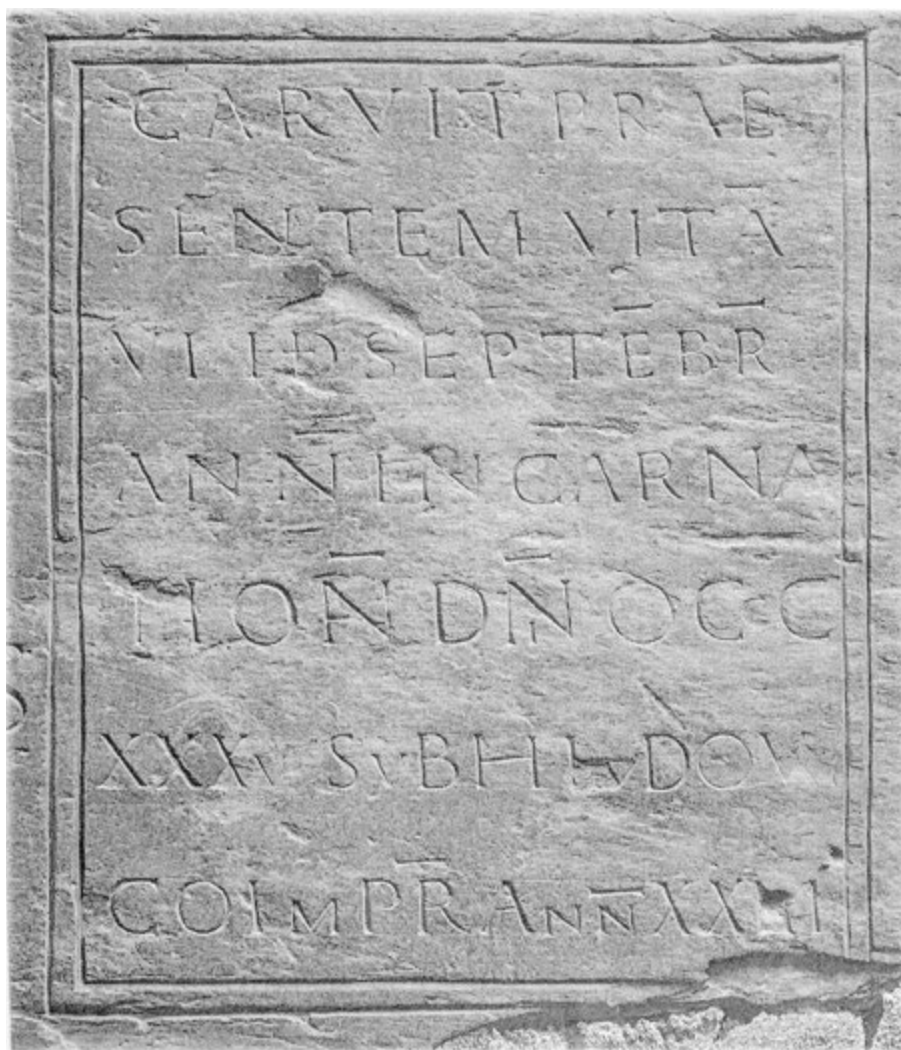 CARVIT̄ PRAE
SENTEM VITĀ
VI ID SEPTĒBR̄
ANN̄ INCARNA
TION̄ DN̄I DCCC
XXXV SVB HLVDOVI
CO IMPR̄ ANN̄ XXII